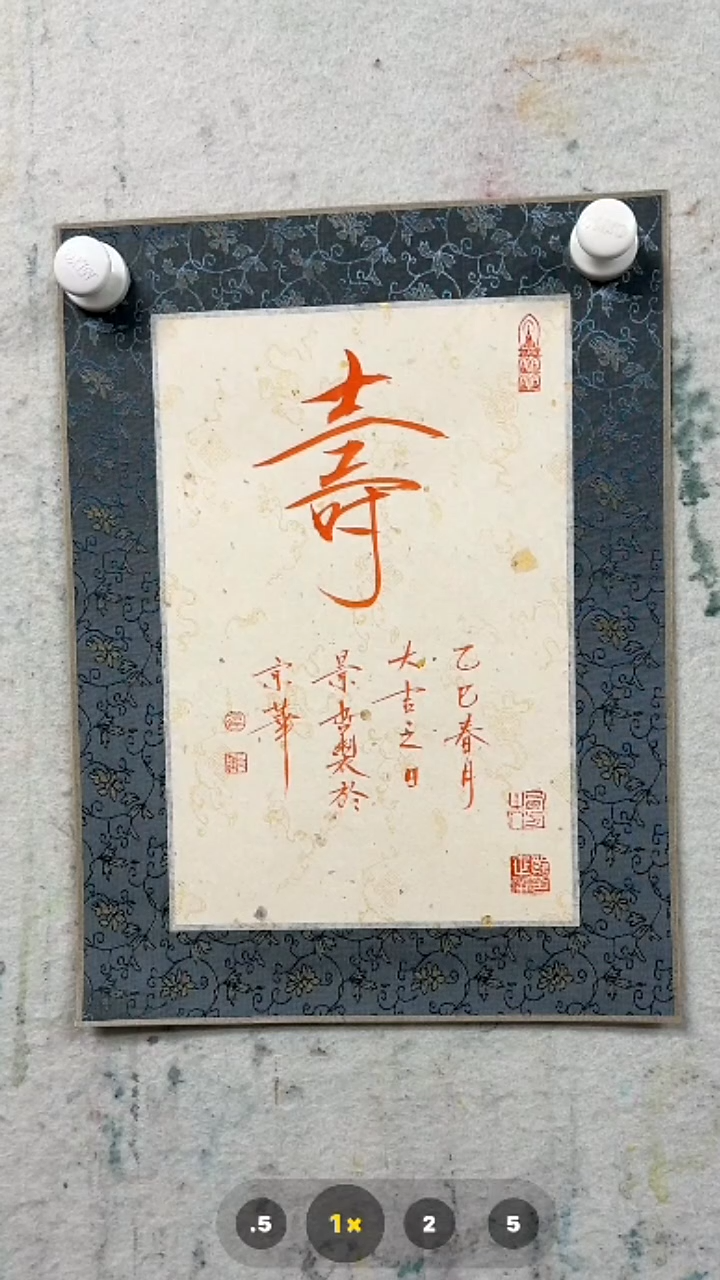 壽
乙巳春月
大吉之日
景哲製於
京華
.5
1×
2
5